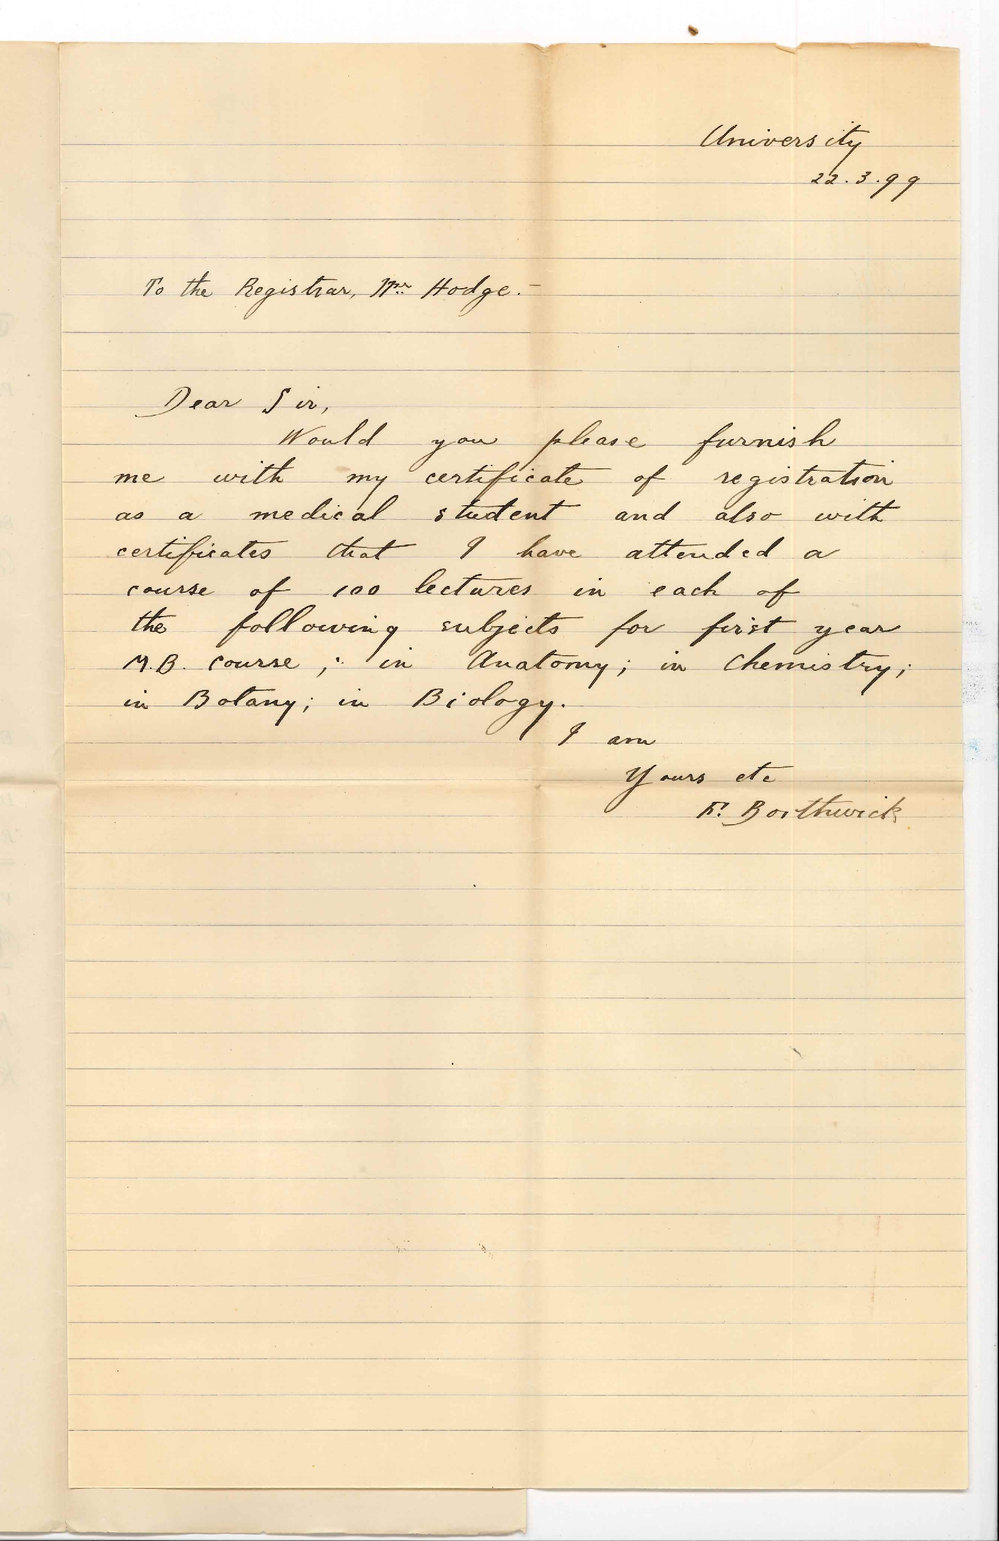 University
22.3.99
To the Registrar, Mr Hodge.-
Dear Sir,
Would you please furnish
me with my certificate of registration
as a medical student and also with
certificates that I have attended a
course of 100 lectures in each of
the following subjects for first year
M.B. course ;: in Anatomy; in Chemistry;
in Botany; in Biology.
I am
Yours etc
F. Borthwick